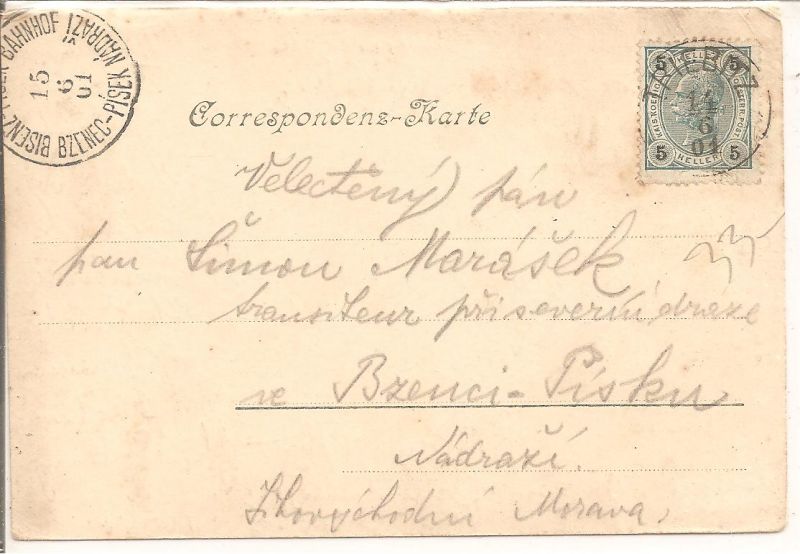 BISENZ-PISEK BAHNHOF
BZENEC-PÍSEK NÁDRAŽÍ
15
6
01
Correspondenz-Karte
5 HELLER 5
14
6
01
5 HELLER 5
Velectěný pán
pan Šimon Marášek
transiteur při severní dráze
ve Bzenci-Písku
Nádraží.
Jihovýchodní Morava,